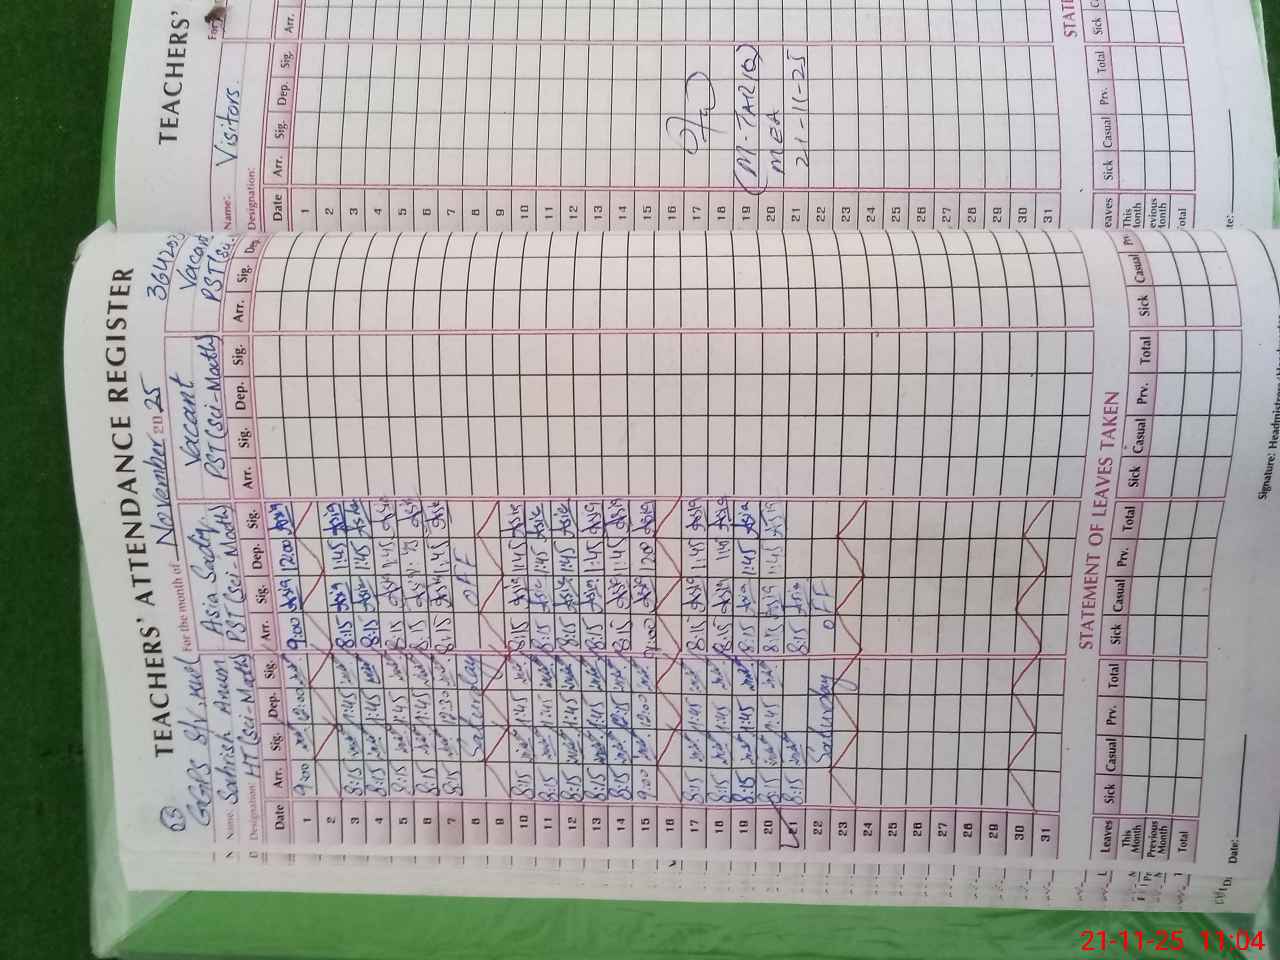 TEACHERS' ATTENDANCE REGISTER
63
GGPS
For the month of November 2025
364202
Name: Sachrish Anum
Asia Sadiq
Vacant
Vacant
Designation: HT (Sci-Math)
PST (Sci-Maths)
PST (Sci-Maths)
PST (Sci.
Date Arr. Sig. Dep. Sig. Arr. Sig. Dep. Sig. Arr. Sig. Dep. Sig. Arr. Sig. Dep.
1 9:00 12:00 9:00 Asia 12:00 Asia
2
3 8:15 1:45 8:15 Asia 1:45 Asia
4 8:15 1:45 8:15 Asia 1:45 Asia
5 8:15 1:45 8:15 Asia 1:45 Asia
6 8:15 1:45 8:15 Asia 1:45 Asia
7 8:15 12:30 8:15 Asia 1:45 Asia
8 Saturday OFF
9
10 8:15 1:45 8:15 Asia 1:45 Asia
11 8:15 1:45 8:15 Asia 1:45 Asia
12 8:15 1:45 8:15 Asia 1:45 Asia
13 8:15 1:45 8:15 Asia 1:45 Asia
14 8:15 8:15 Asia 1:45 Asia
15 9:00 12:00 9:00 Asia 12:00 Asia
16
17 8:15 1:45 8:15 Asia 1:45 Asia
18 8:15 1:45 8:15 Asia 1:45 Asia
19 8:15 1:45 8:15 Asia 1:45 Asia
20 8:15 1:45 8:15 Asia 1:45 Asia
21 8:15 8:15 Asia
22 Saturday OFF
23
24
25
26
27
28
29
30
31
STATEMENT OF LEAVES TAKEN
Leaves Sick Casual Prv. Total Sick Casual Prv. Total Sick Casual Prv. Total Sick Casual
This Month
Previous Month
Total
Date:
Signature: Headmistress
TEACHERS'
For
Name: Visitors
Designation:
Date Arr. Sig. Dep. Sig. Arr.
1
2
3
4
5
6
7
8
9
10
11
12
13
14
15
16
17
18
19 (M-TARIQ)
20 MEA
21 21-11-25
22
23
24
25
26
27
28
29
30
31
STATE
eaves Sick Casual Prv. Total Sick
This Month
evious Month
otal
te:
21-11-25 11:04